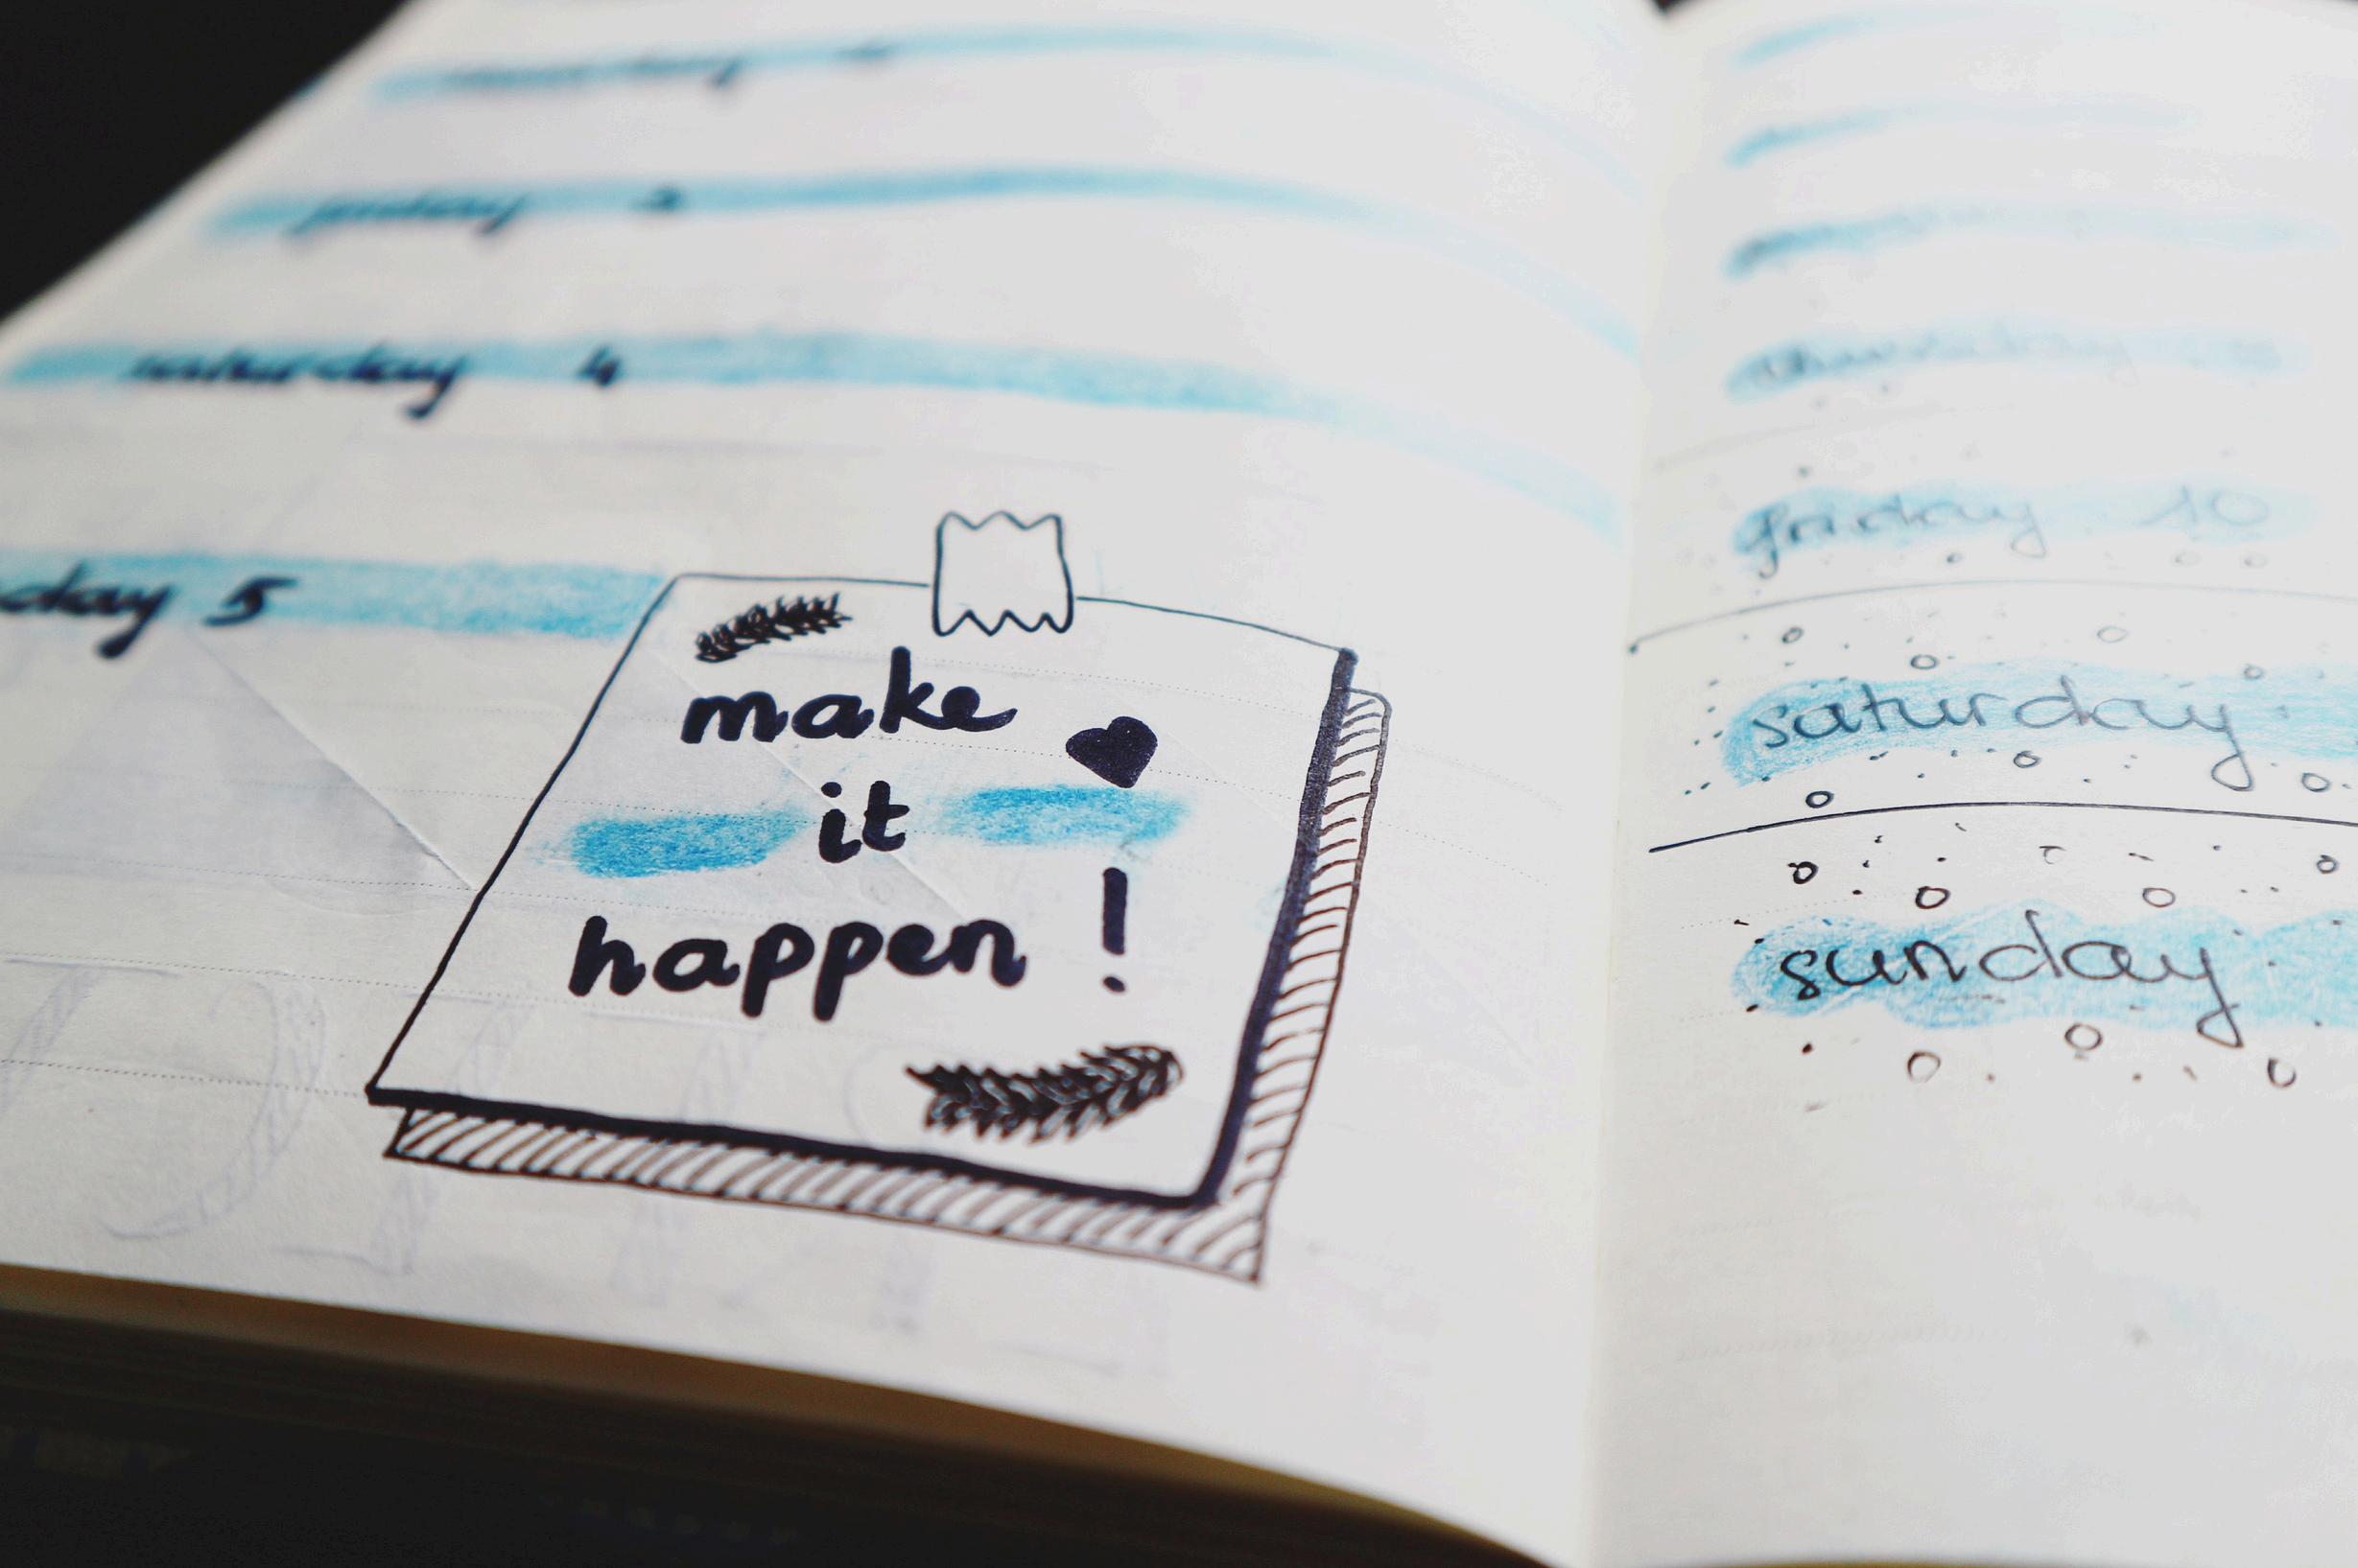 friday
saturday 4
day 5
make
it
happen !
thursday
friday 10
saturday
sunday